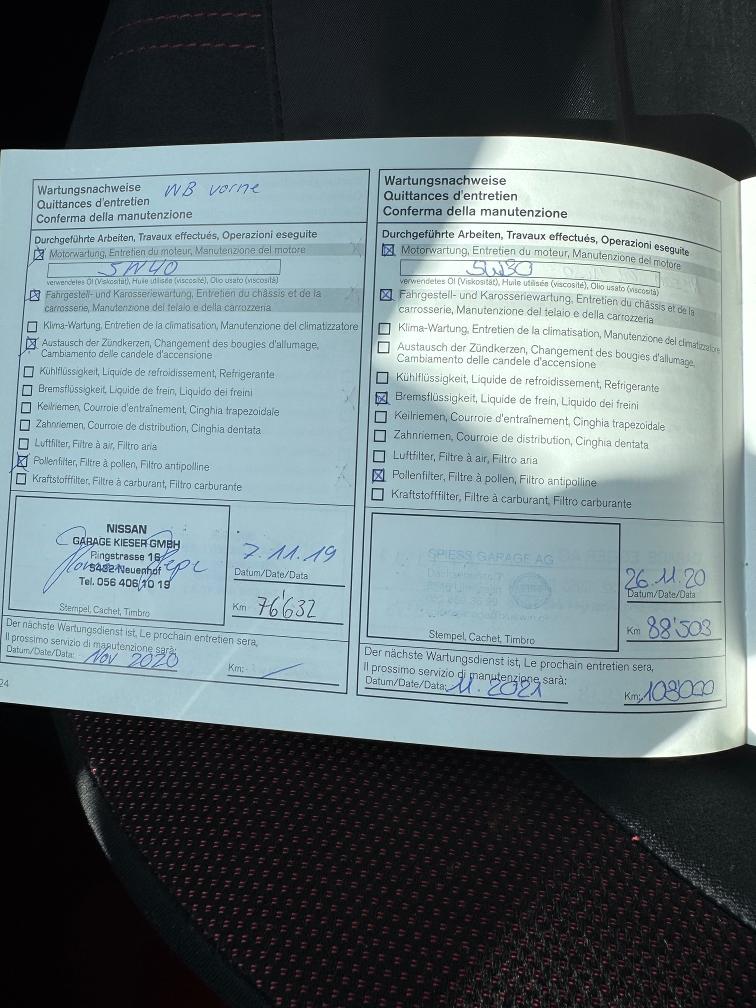 Wartungsnachweise WB vorne
Quittances d'entretien
Conferma della manutenzione
Durchgeführte Arbeiten, Travaux effectués, Operazioni eseguite
Motorwartung, Entretien du moteur, Manutenzione del motore
5W40
verwendetes Öl (Viskosität), Huile utilisée (viscosité), Olio usato (viscosità)
Fahrgestell- und Karosseriewartung, Entretien du châssis et de la
carrosserie, Manutenzione del telaio e della carrozzeria
Klima-Wartung, Entretien de la climatisation, Manutenzione del climatizzatore
Austausch der Zündkerzen, Changement des bougies d'allumage,
Cambiamento delle candele d'accensione
Kühlflüssigkeit, Liquide de refroidissement, Refrigerante
Bremsflüssigkeit, Liquide de frein, Liquido dei freini
Keilriemen, Courroie d'entraînement, Cinghia trapezoidale
Zahnriemen, Courroie de distribution, Cinghia dentata
Luftfilter, Filtre à air, Filtro aria
Pollenfilter, Filtre à pollen, Filtro antipolline
Kraftstofffilter, Filtre à carburant, Filtro carburante
NISSAN
GARAGE KIESER GMBH
Ringstrasse 16
5432 Neuenhof
Tel. 056 406 10 19
Stempel, Cachet, Timbro
7.11.19
Datum/Date/Data
Km 76'632
Der nächste Wartungsdienst ist, Le prochain entretien sera,
Il prossimo servizio di manutenzione sarà:
Datum/Date/Data: Nov 2020 Km:
24
Wartungsnachweise
Quittances d'entretien
Conferma della manutenzione
Durchgeführte Arbeiten, Travaux effectués, Operazioni eseguite
Motorwartung, Entretien du moteur, Manutenzione del motore
5W30
verwendetes Öl (Viskosität), Huile utilisée (viscosité), Olio usato (viscosità)
Fahrgestell- und Karosseriewartung, Entretien du châssis et de la
carrosserie, Manutenzione del telaio e della carrozzeria
Klima-Wartung, Entretien de la climatisation, Manutenzione del climatizzatore
Austausch der Zündkerzen, Changement des bougies d'allumage,
Cambiamento delle candele d'accensione
Kühlflüssigkeit, Liquide de refroidissement, Refrigerante
Bremsflüssigkeit, Liquide de frein, Liquido dei freini
Keilriemen, Courroie d'entraînement, Cinghia trapezoidale
Zahnriemen, Courroie de distribution, Cinghia dentata
Luftfilter, Filtre à air, Filtro aria
Pollenfilter, Filtre à pollen, Filtro antipolline
Kraftstofffilter, Filtre à carburant, Filtro carburante
SPIESS GARAGE AG
Stempel, Cachet, Timbro
26.11.20
Datum/Date/Data
Km 88'503
Der nächste Wartungsdienst ist, Le prochain entretien sera,
Il prossimo servizio di manutenzione sarà:
Datum/Date/Data: 11.2021 Km: 108000